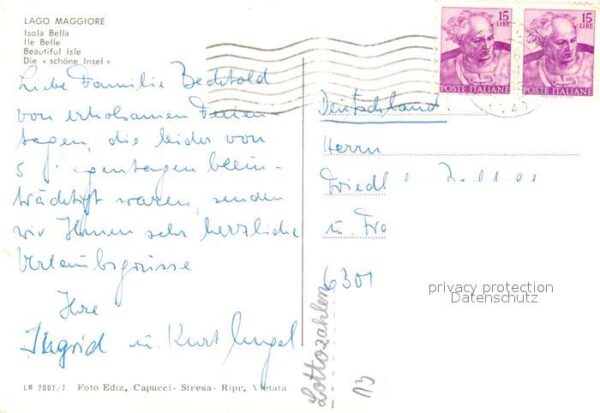 LAGO MAGGIORE
Isola Bella
Ile Belle
Beautiful Isle
Die « schöne Insel »
Liebe Familie Bechtold
von erholsamen Ferien
tagen, die leider von
5 Regentagen beein-
trächtigt waren, senden
wir Ihnen sehr herzliche
Urlaubsgrüsse
Ihre
Ingrid u. Kurt
LM 7007/7 Foto Ediz. Capucci- Stresa- Ripr. Vietata
15 LIRE
POSTE ITALIANE
15 LIRE
POSTE ITALIANE
Deutschland.
Herrn
Friedl
u. Fra
6301
privacy protection
Datenschutz
Lottozahlen